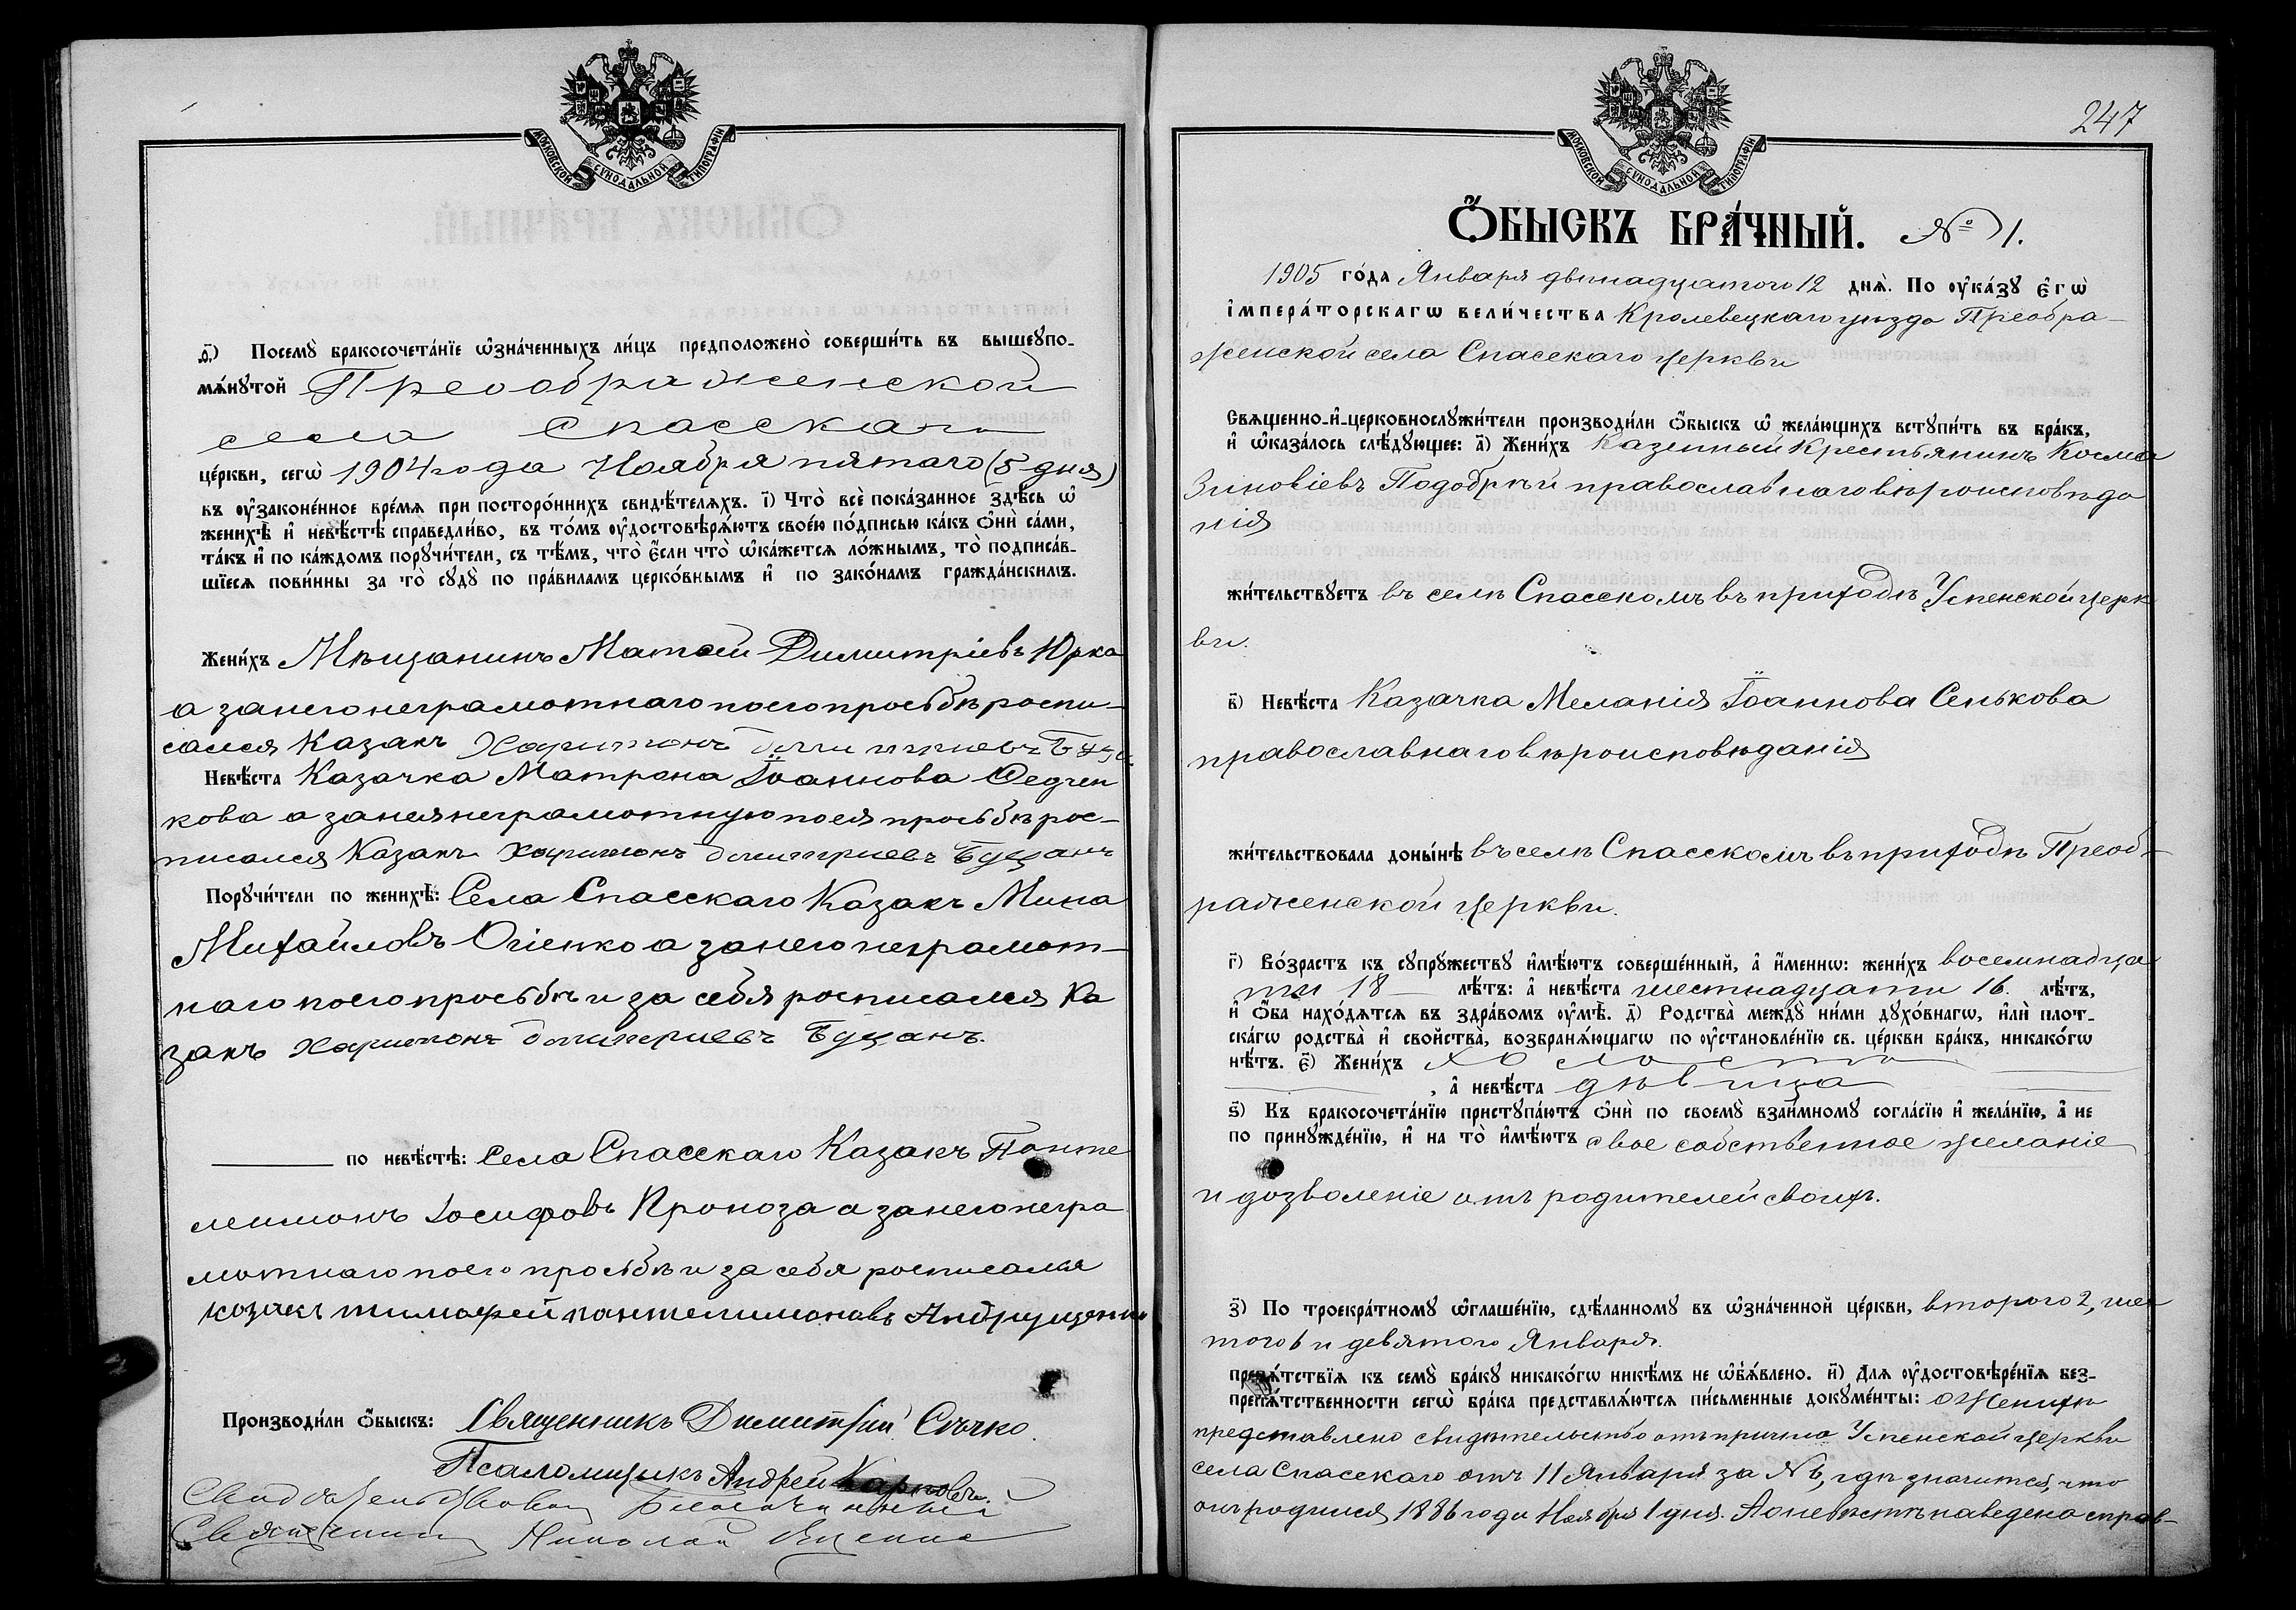 МОСКОВСКОЙ СѴНОДАЛЬНОЙ ТИПОГРАФІИ
ѳ҃) Посемꙋ̀ бракосочета́нїе ѡ҆зна́ченныхъ ли́цъ предположено̀ соверши́ть въ вышеꙋпо-
мѧ́нꙋтой Преображенской
села Спасскаго
це́ркви, сегѡ̀ 1904 года Ноября пятаго (5 дня)
въ ᲂу҆зако́ненное вре́мѧ при посторо́ннихъ свидѣ́телѧхъ. і҃) Что̀ всѐ пока́занное здѣ́сь ѡ҆
женихѣ̀ и҆ невѣ́стѣ справедли́во, въ то́мъ ᲂу҆достовѣрѧ́ютъ свое́ю по́дписью ка́къ ѻ҆нѝ са́ми,
та́къ и҆ по ка́ждомъ порꙋчи́тели, съ тѣ́мъ, что̀ є҆́сли что̀ ѡ҆ка́жетсѧ ло́жнымъ, то̀ подписа́в-
шїесѧ пови́нны за то̀ сꙋдꙋ̀ по пра́виламъ церко́внымъ и҆ по зако́намъ гражда́нскимъ.
Жени́хъ Мѣщанинъ Матѳей Димитріевъ Юрка
а за него неграмотнаго по его просьбѣ роспи-
сался Казакъ Харитонъ Димитриевъ Буцанъ
Невѣ́ста Казачка Матрона Іоаннова Ѳедчен
кова а за нея неграмотную по ея просьбѣ рос-
писался Казакъ Харитонъ Димитриевъ Буцанъ
Порꙋчи́тели по женихѣ̀: Села Спасскаго Казакъ Мина
Михайловъ Огіенко а за него неграмот-
наго по его просьбѣ и за себя росписался Ка
закъ Харитонъ Димитриевъ Буцанъ.
по невѣ́стѣ: Села Спасскаго Казакъ Панте
леимонъ Іосифовъ Проноза а за него негра
мотнаго по его просьбѣ и за себя росписался
козакъ тимофей пантелимоновъ Андрущенко
Производи́ли ѻ҆́быскъ: Священникъ Димитрій Сѣчко.
Псаломщикъ Андрей Карповъ.
Благочинный
Священникъ Николай
247
МОСКОВСКОЙ СѴНОДАЛЬНОЙ ТИПОГРАФІИ
Ѻ҆́БЫСКЪ БРА́ЧНЫЙ. № 1.
1905 го́да Января двѣнадцатого 12 днѧ̀. По ᲂу҆ка́зꙋ є҆гѡ̀
і҆мпера́торскагѡ вели́чества Кролевецкаго уѣзда Преобра-
женской села Спасскаго церкви
Свѧщенно-и҆-церковнослꙋжи́тели производи́ли ѻ҆́быскъ ѡ҆ жела́ющихъ встꙋпи́ть въ бра́къ,
и҆ ѡ҆каза́лось слѣ́дꙋющее: а҃) Жени́хъ Казенный Крестьянинъ Косма
Зиновіевъ Подобрѣй православнаго вѣроисповѣда
нія
жи́тельствꙋетъ въ селѣ Спасскомъ въ приходѣ Успенской церк
ви.
в҃) Невѣ́ста Казачка Меланія Іоаннова Сенькова
православнаго вѣроисповѣданія
жи́тельствовала донн́нѣ въ селѣ Спасскомъ въ приходѣ Преоб-
раженской церкви.
г҃) Во́зрастъ къ сꙋпрꙋ́жествꙋ и҆мѣ́ютъ соверше́нный, а҆ и҆́меннѡ: жени́хъ восемнадца
ти 18 лѣ́тъ: а҆ невѣ́ста шестнадцати 16. лѣ́тъ,
и҆ ѻ҆́ба нахо́дѧтсѧ въ здра́вомъ ᲂу҆мѣ̀. д҃) Родства̀ междꙋ̀ ни́ми дꙋхо́внагѡ, и҆лѝ плот-
ска́гѡ родства̀ и҆ сво́йства, возбранѧ́ющагѡ по ᲂу҆становле́нїю св. це́ркви бра́къ, никако́гѡ
нѣ́тъ. є҃) Жени́хъ холостъ
, а҆ невѣ́ста дѣвица
ѕ҃) Къ бракосочета́нїю пристꙋпа́ютъ ѻ҆нѝ по своемꙋ̀ взаи́мномꙋ согла́сїю и҆ жела́нїю, а҆ не
по принꙋжде́нїю, и҆ на то̀ и҆мѣ́ютъ свое собственное желаніе
и дозволеніе отъ родителей своихъ.
з҃) По троекра́тномꙋ ѡ҆глаше́нїю, сдѣ́ланномꙋ въ ѡ҆зна́ченной це́ркви, второго 2, шес
того 6 и девятого Января.
препѧ́тствїѧ къ семꙋ̀ бра́кꙋ никако́гѡ никѣ́мъ не ѡ҆б̾ѧ́влено. и҃) Длѧ ᲂу҆достовѣре́нїѧ без-
препѧ́тственности сегѡ̀ бра́ка представлѧ́ютсѧ пи́сьменные докꙋме́нты: о Женихѣ
представлено свидѣтельство отъ причта Успенской церкви
села Спасскаго отъ 11 Января за № 6, гдѣ значится, что
онъ родился 1886 года Ноября 1 дня. А о невѣстѣ наведена справ-